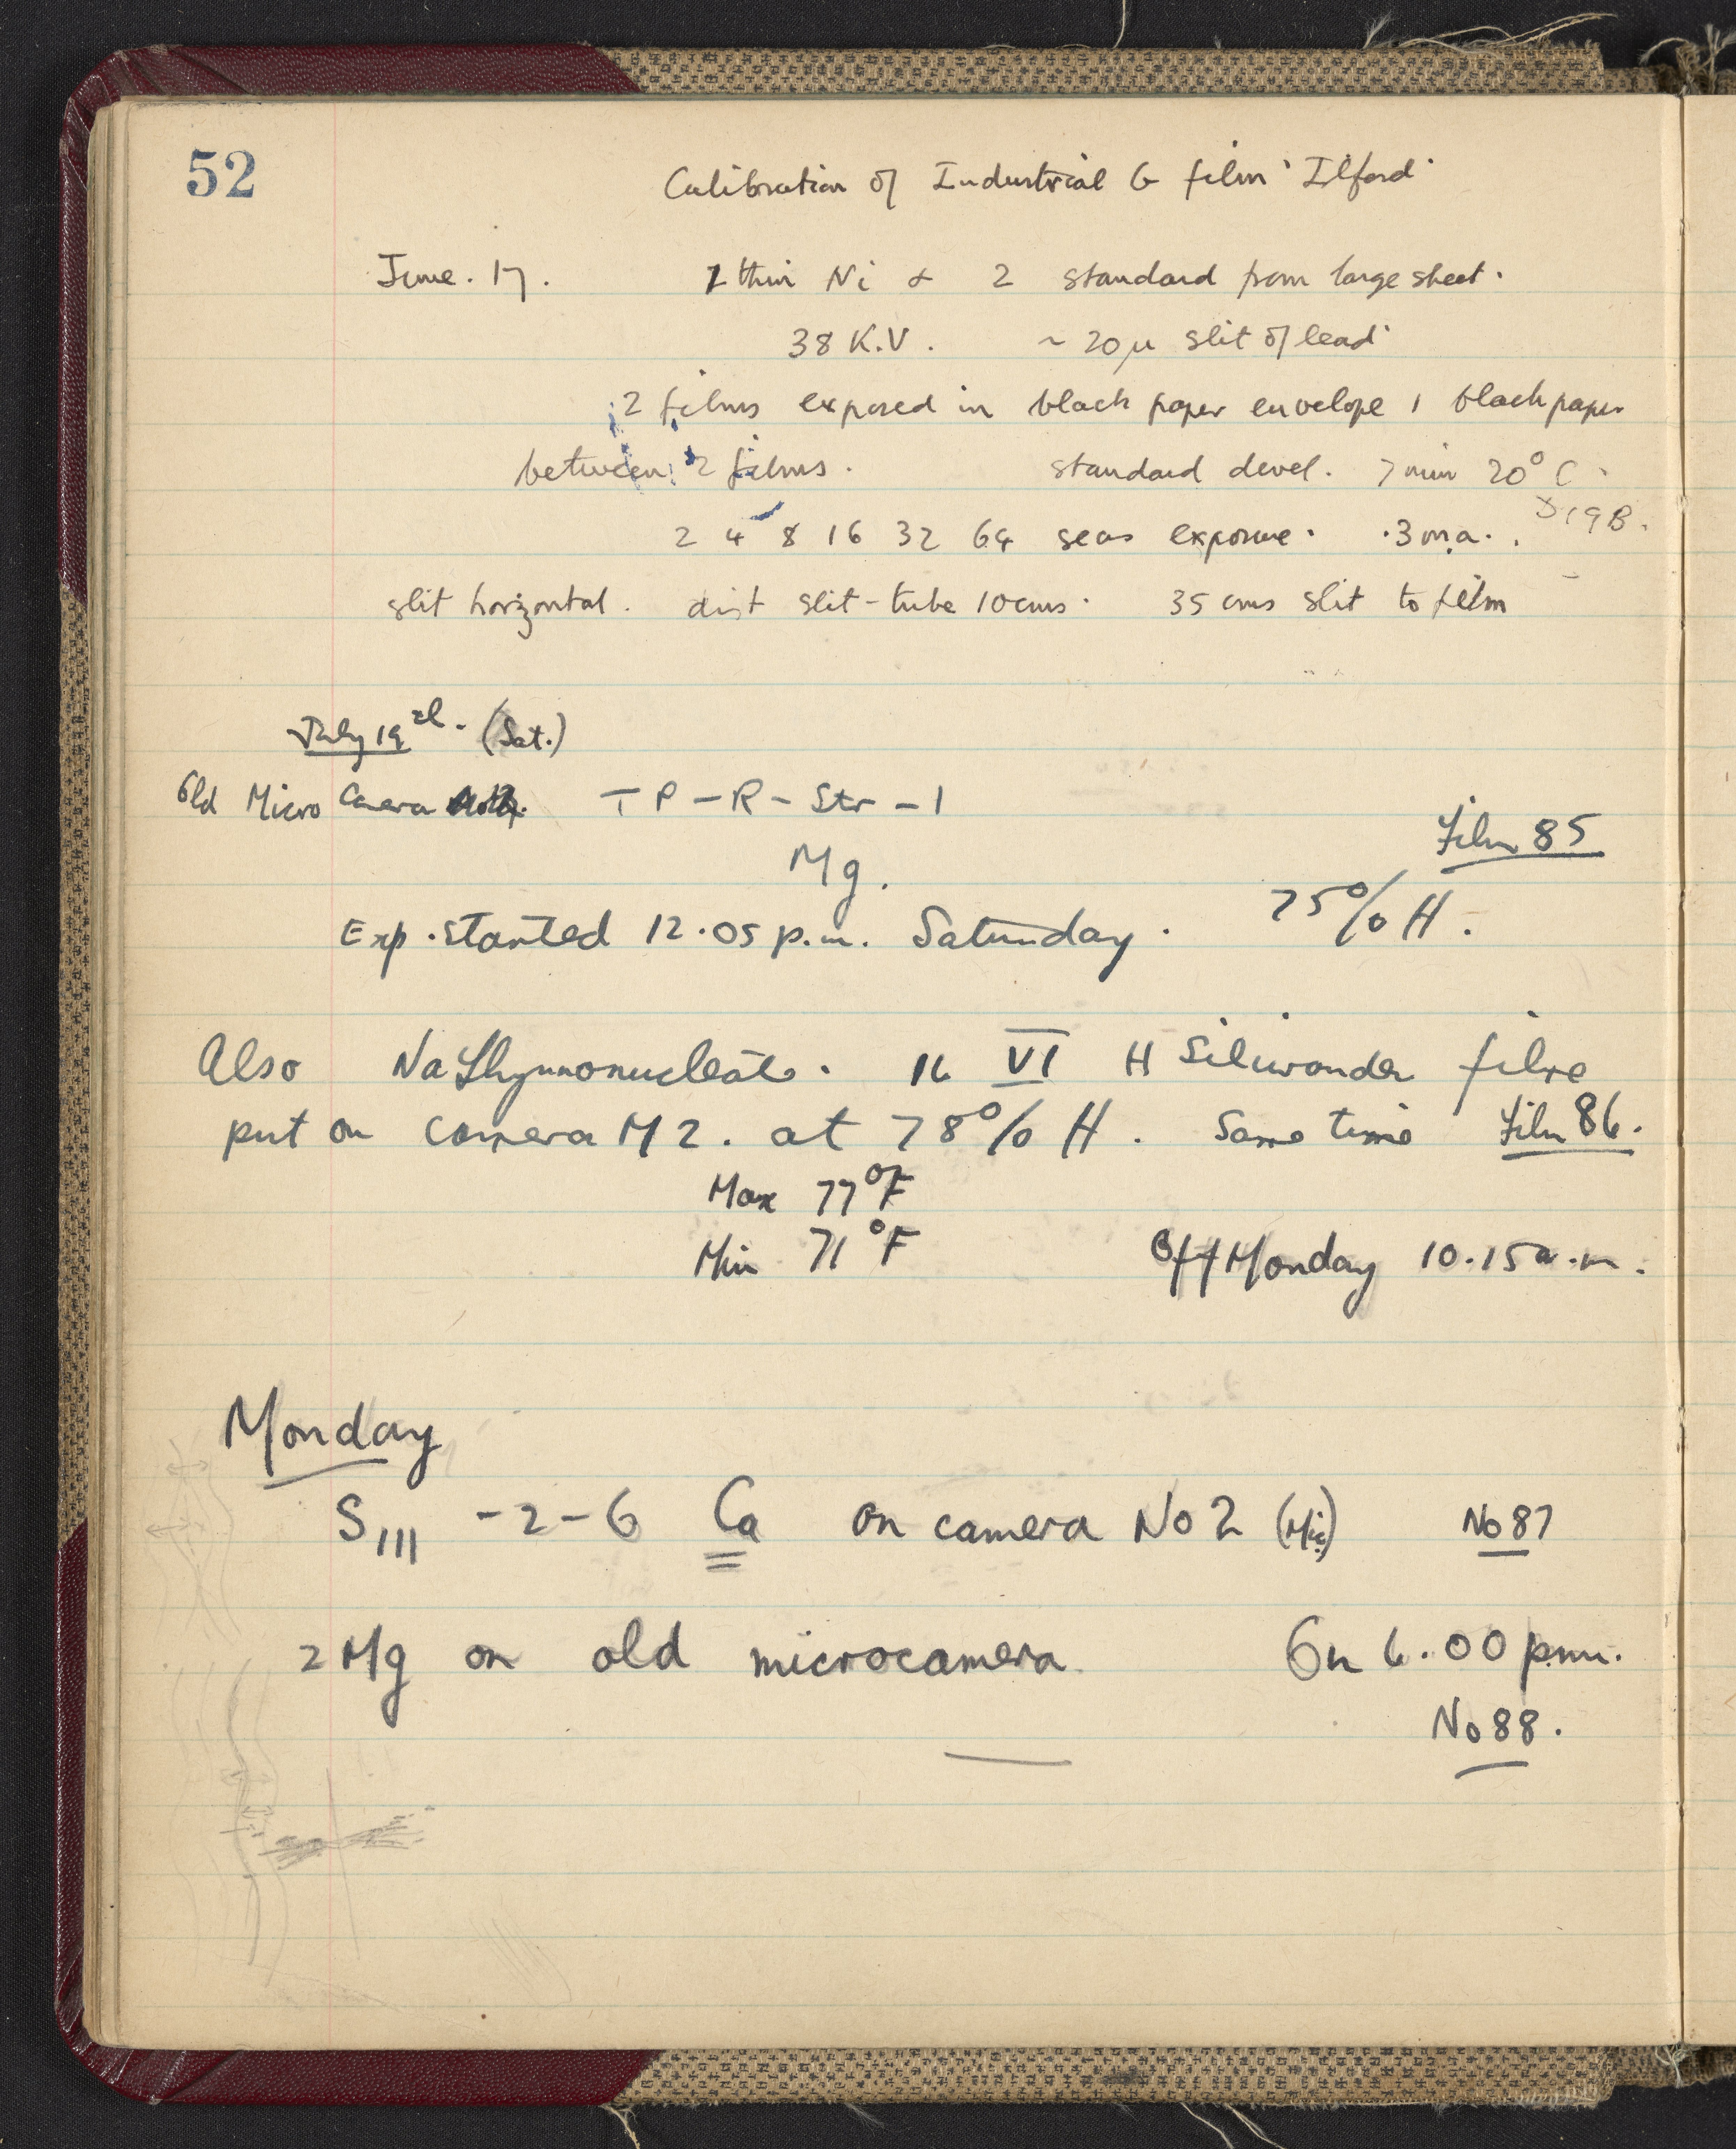 52
Calibration of Industrial G film 'Ilford'
June. 17. 1 thin Ni & 2 standard from large sheet.
38 K.V. ~ 20μ slit of lead
2 films exposed in black paper envelope 1 black paper
between 2 films. standard devel. 7 min 20° C.
D19B.
2 4 8 16 32 64 secs exposure. .3 m.a.
slit horizontal. dist slit-tube 10cms. 35 cms slit to film
July 19 (Sat.)
Old Micro Camera T P - R - Str - 1
Film 85
Mg.
75% H.
Exp. started 12.05 p.m. Saturday.
Also Na Thymonucleate. 16 VI H Silivonder fibre
put on camera M2. at 78% H. Same time Film 86.
Max 77°F
Min 71°F
Off Monday 10.15 a.m.
Monday
S111 - 2 - 6 Ca on camera No 2 (Mic) No 87
2 Mg on old microcamera. On 6.00 p.m.
No 88.